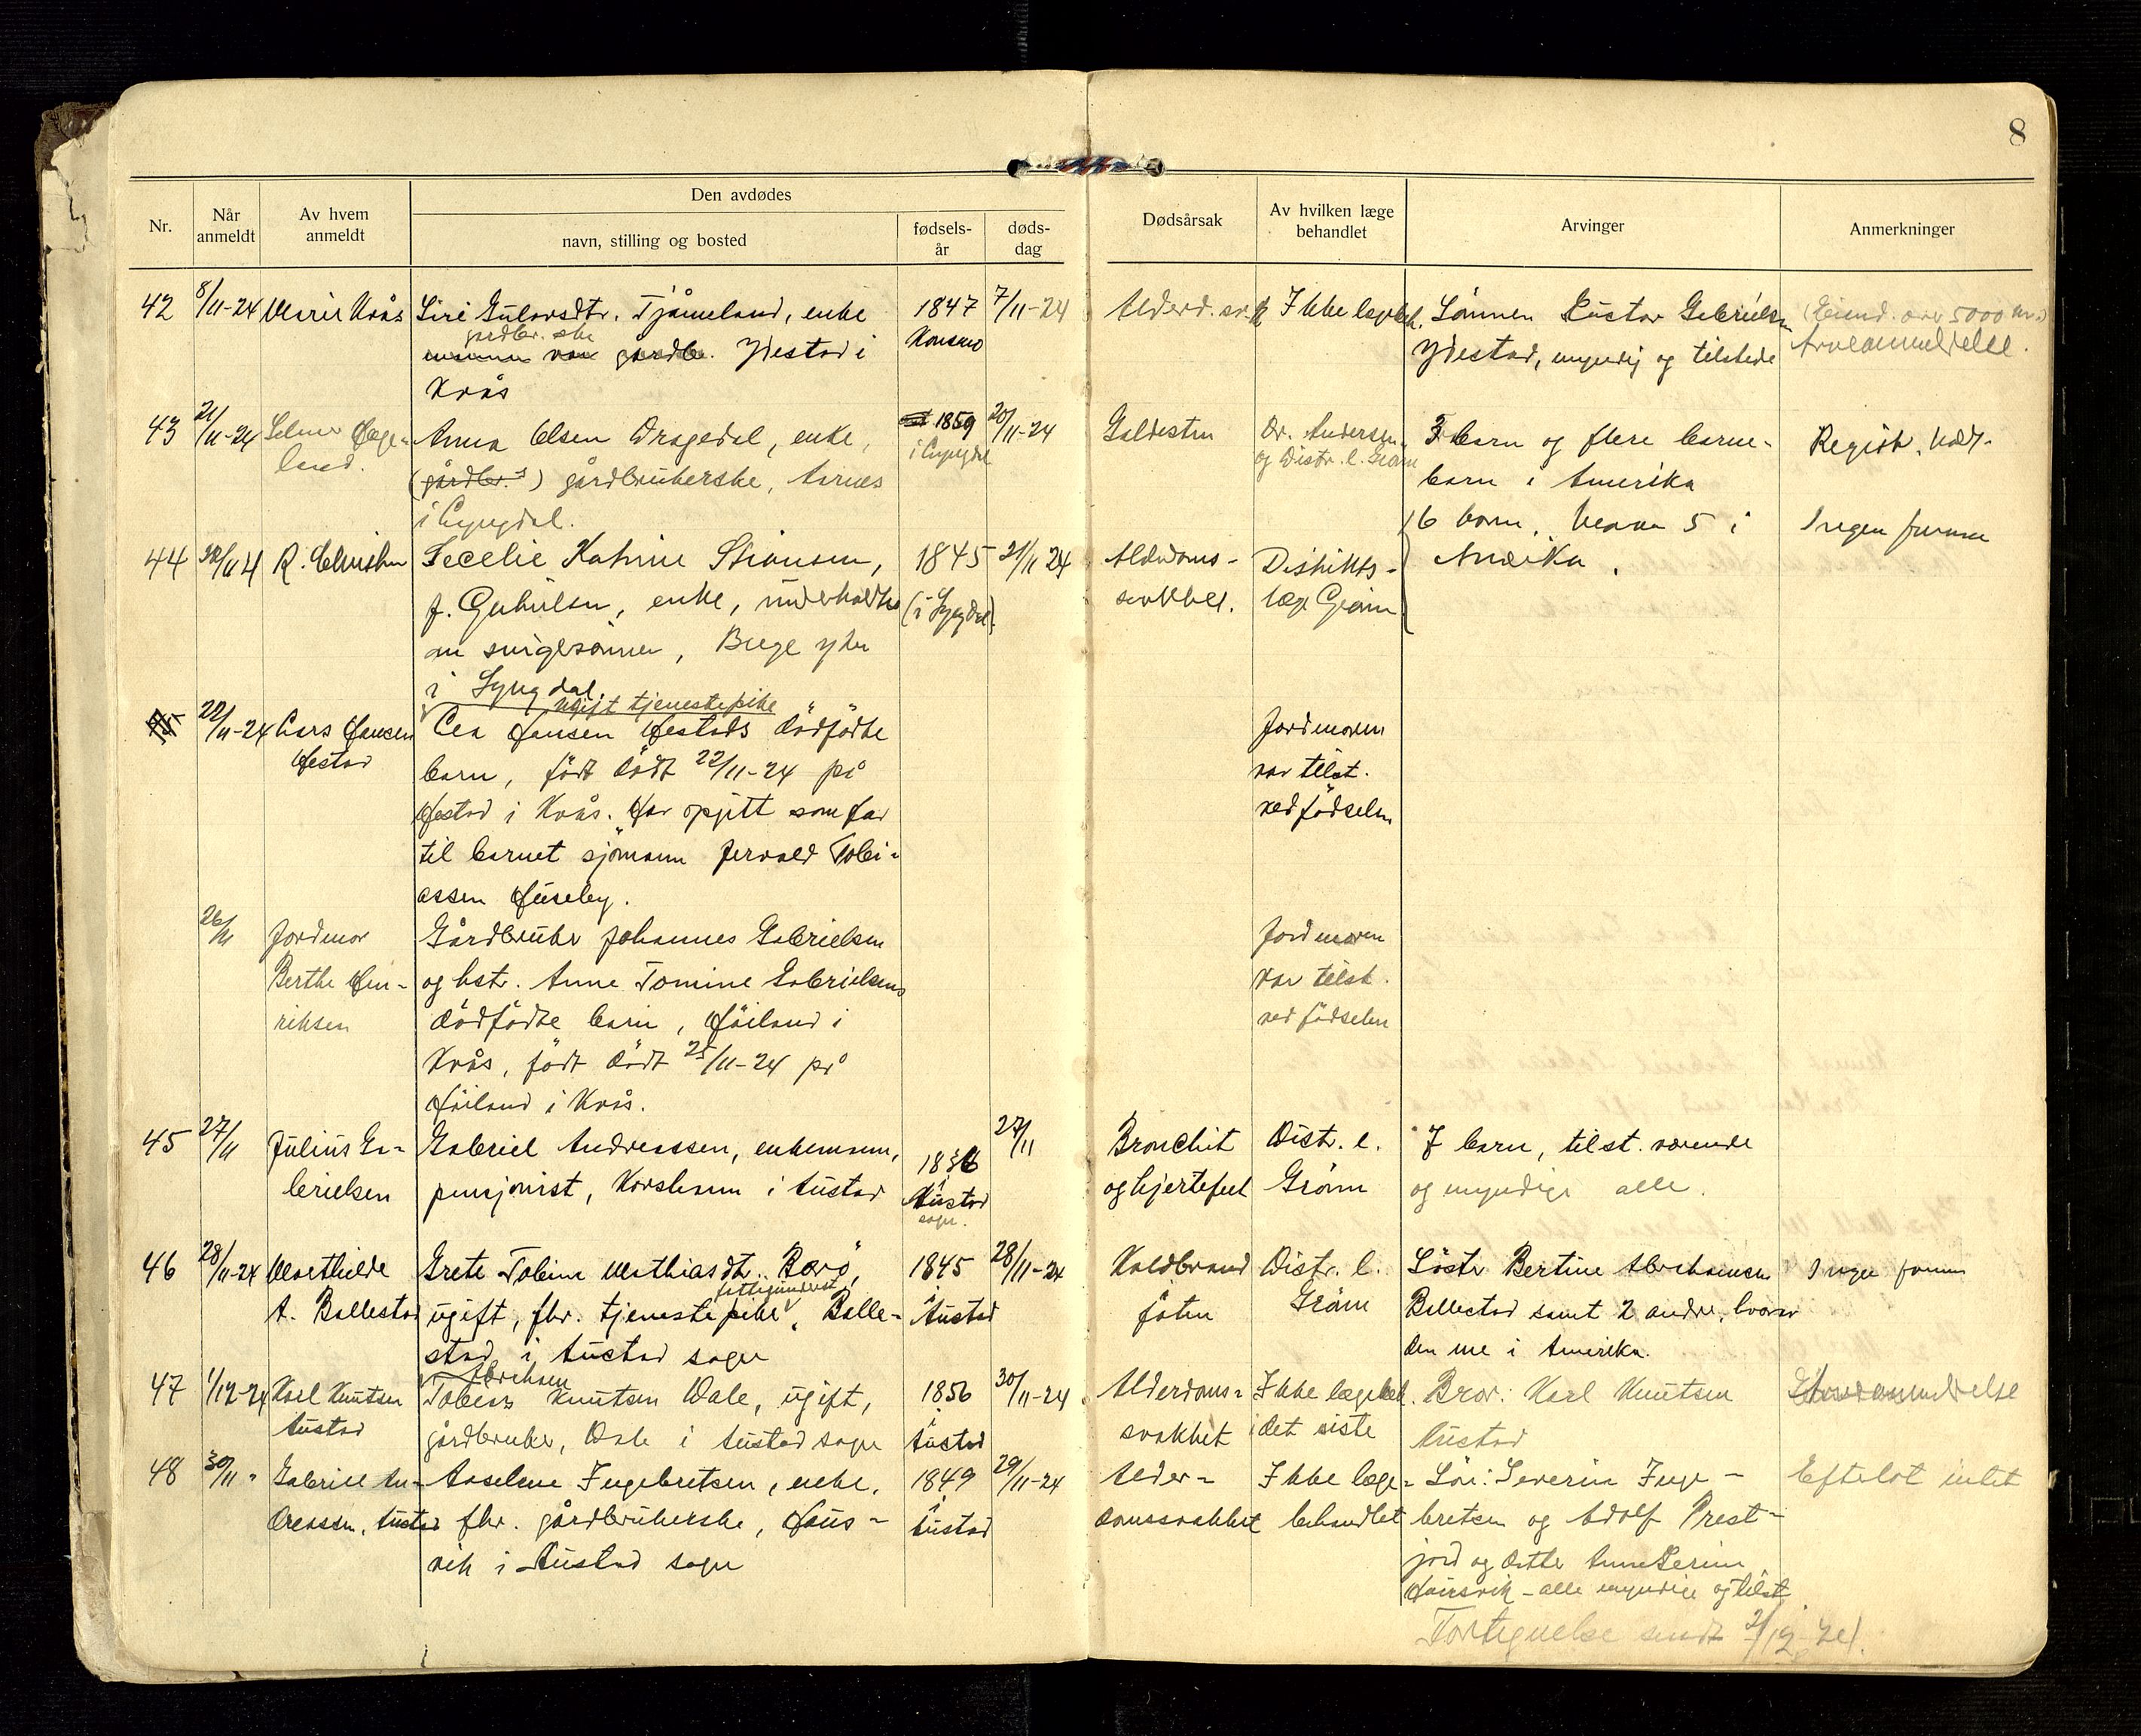 8
Nr.
Når anmeldt
Av hvem anmeldt
Den avdødes
navn, stilling og bosted
fødsels-år
døds-dag
Dødsårsak
Av hvilken læge behandlet
Arvinger
Anmerkninger
42 8/11-24 Marie Kvås Siri Gulovsdtr. Tjåmeland, enke 1847 7/11-24 Alderd.svk Ikke lægebeh. Sönnen Gustav Gabrielsen (Eiend. over 5000 kr.)
gårdbr.ske
gårdbr. Ydestad i Konsmo Ydestad, myndig og tilstede Arveanmeldelse.
Kvås
43 21/11-24 Selmer Hæge- Anna Olsen Dragedal, enke, 1859 20/11-24 Galdestin Dr. Andersen 3 barn og flere barne- Regist. holdt.
land. (gårdbr.s) gårdbrukerske, Aarnes i Lyngdal og Distr.l. Grönn barn i Amerika
i Lyngdal.
44 22/11 24 R. Christensen Secelie Katrine Stiansen, 1845 21/11 24 Alderdoms- Distrikts- 6 barn, herav 5 i Ingen formue
f. Gabrielsen, enke, underholdtes (i Lyngdal). svakhet. læge Grönn Amerika.
av svigersönnen, Berge ytre
i Lyngdal.
ugift tjenestepike
45 22/11-24 Lars Hansen Lea Hansen Hestads dödfödte Jordmoren
Hestad barn, födt dödt 22/11-24 på var tilst.
Hestad i Kvås. Har opgitt som far ved födselen
til barnet sjömann Tobi-
assen Huseby.
26/11 Jordmor Gårdbruker Johannes Gabrielsen Jordmoren
Berthe Hen- og hst. Anne Tomine Gabrielsens var tilst.
riksen dödfödte barn, Höiland i ved födselen
Kvås, födt dödt 25/11-24 på
Höiland i Kvås.
45 27/11 Julius Ga- Gabriel Andreassen, enkemann, 1836 27/11 Bronchit Distr. l. 7 barn, tilst. værende
brielsen pensjonist, Korshamn i Austad Austad sogn. og hjertefeil Grönn og myndige alle.
46 28/11-24 Mathilde Grete Tobine Mathiasdtr. Barö, 1845 28/11-24 Koldbrand Distr. l. Söster Bertine Abrahamsen Ingen formue
fattigunderst.
A. Ballestad ugift, fhv. tjenestepike, Balle- Austad i foten Grönn Ballestad samt 2 andre, hvorav
stad i Austad sogn den ene i Amerika.
Abraham
47 1/12-24 Karl Knutsen Tobias Knutsen Dale, ugift, 1856 30/11-24 Alderdoms- Ikke lægebeh. Bror: Karl Knutsen Arveanmeldelse
Austad gårdbruker, Dale i Austad sogn Austad svakhet i det siste Austad
48 30/11 " Gabriel An- Aaselene Ingebretsen, enke, 1849 29/11-24 Alder- Ikke læge- Sön: Severin Inge- Efterlot intet
dreassen, Austad fhv. gårdbrukerske, Haus- Austad domssvakhet behandlet bretsen og Adolf Prest-
vik i Austad sogn jord og datter Anne Serine
Hausvik - alle myndige og tilst.
Fortegnelse sendt 2/12-24.